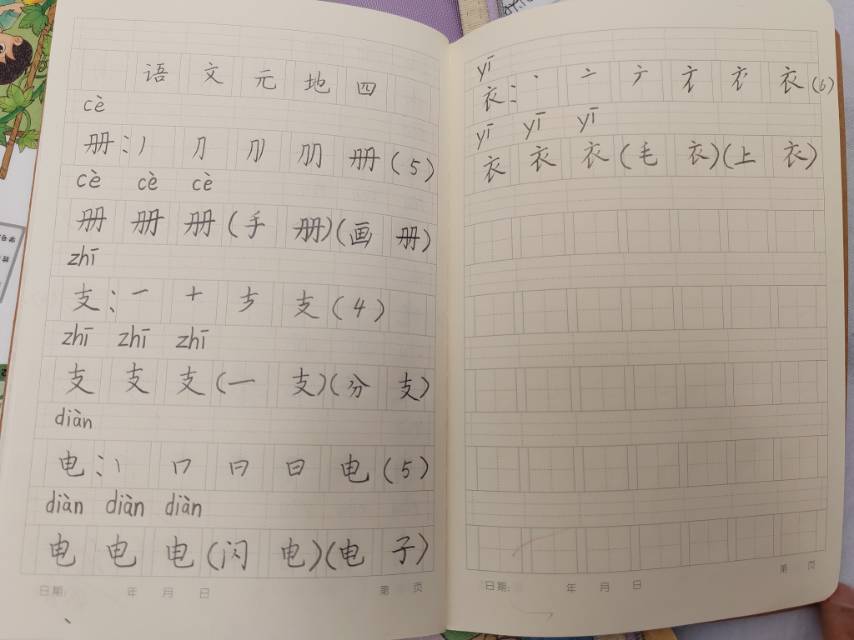 语文元地四
cè
册：丿 ⺆ 刖 朋 册(5)
cè cè cè
册 册 册(手册)(画册)
zhī
支：一 十 支(4)
zhī zhī zhī
支 支 支(一支)(分支)
diàn
电：丨 口 日 日 电(5)
diàn diàn diàn
电 电 电(闪电)(电子)
日期: 年 月 日 第 页
yī
衣：丶 亠 衣(6)
yī yī yī
衣 衣 衣(毛衣)(上衣)
日期: 年 月 日 第 页